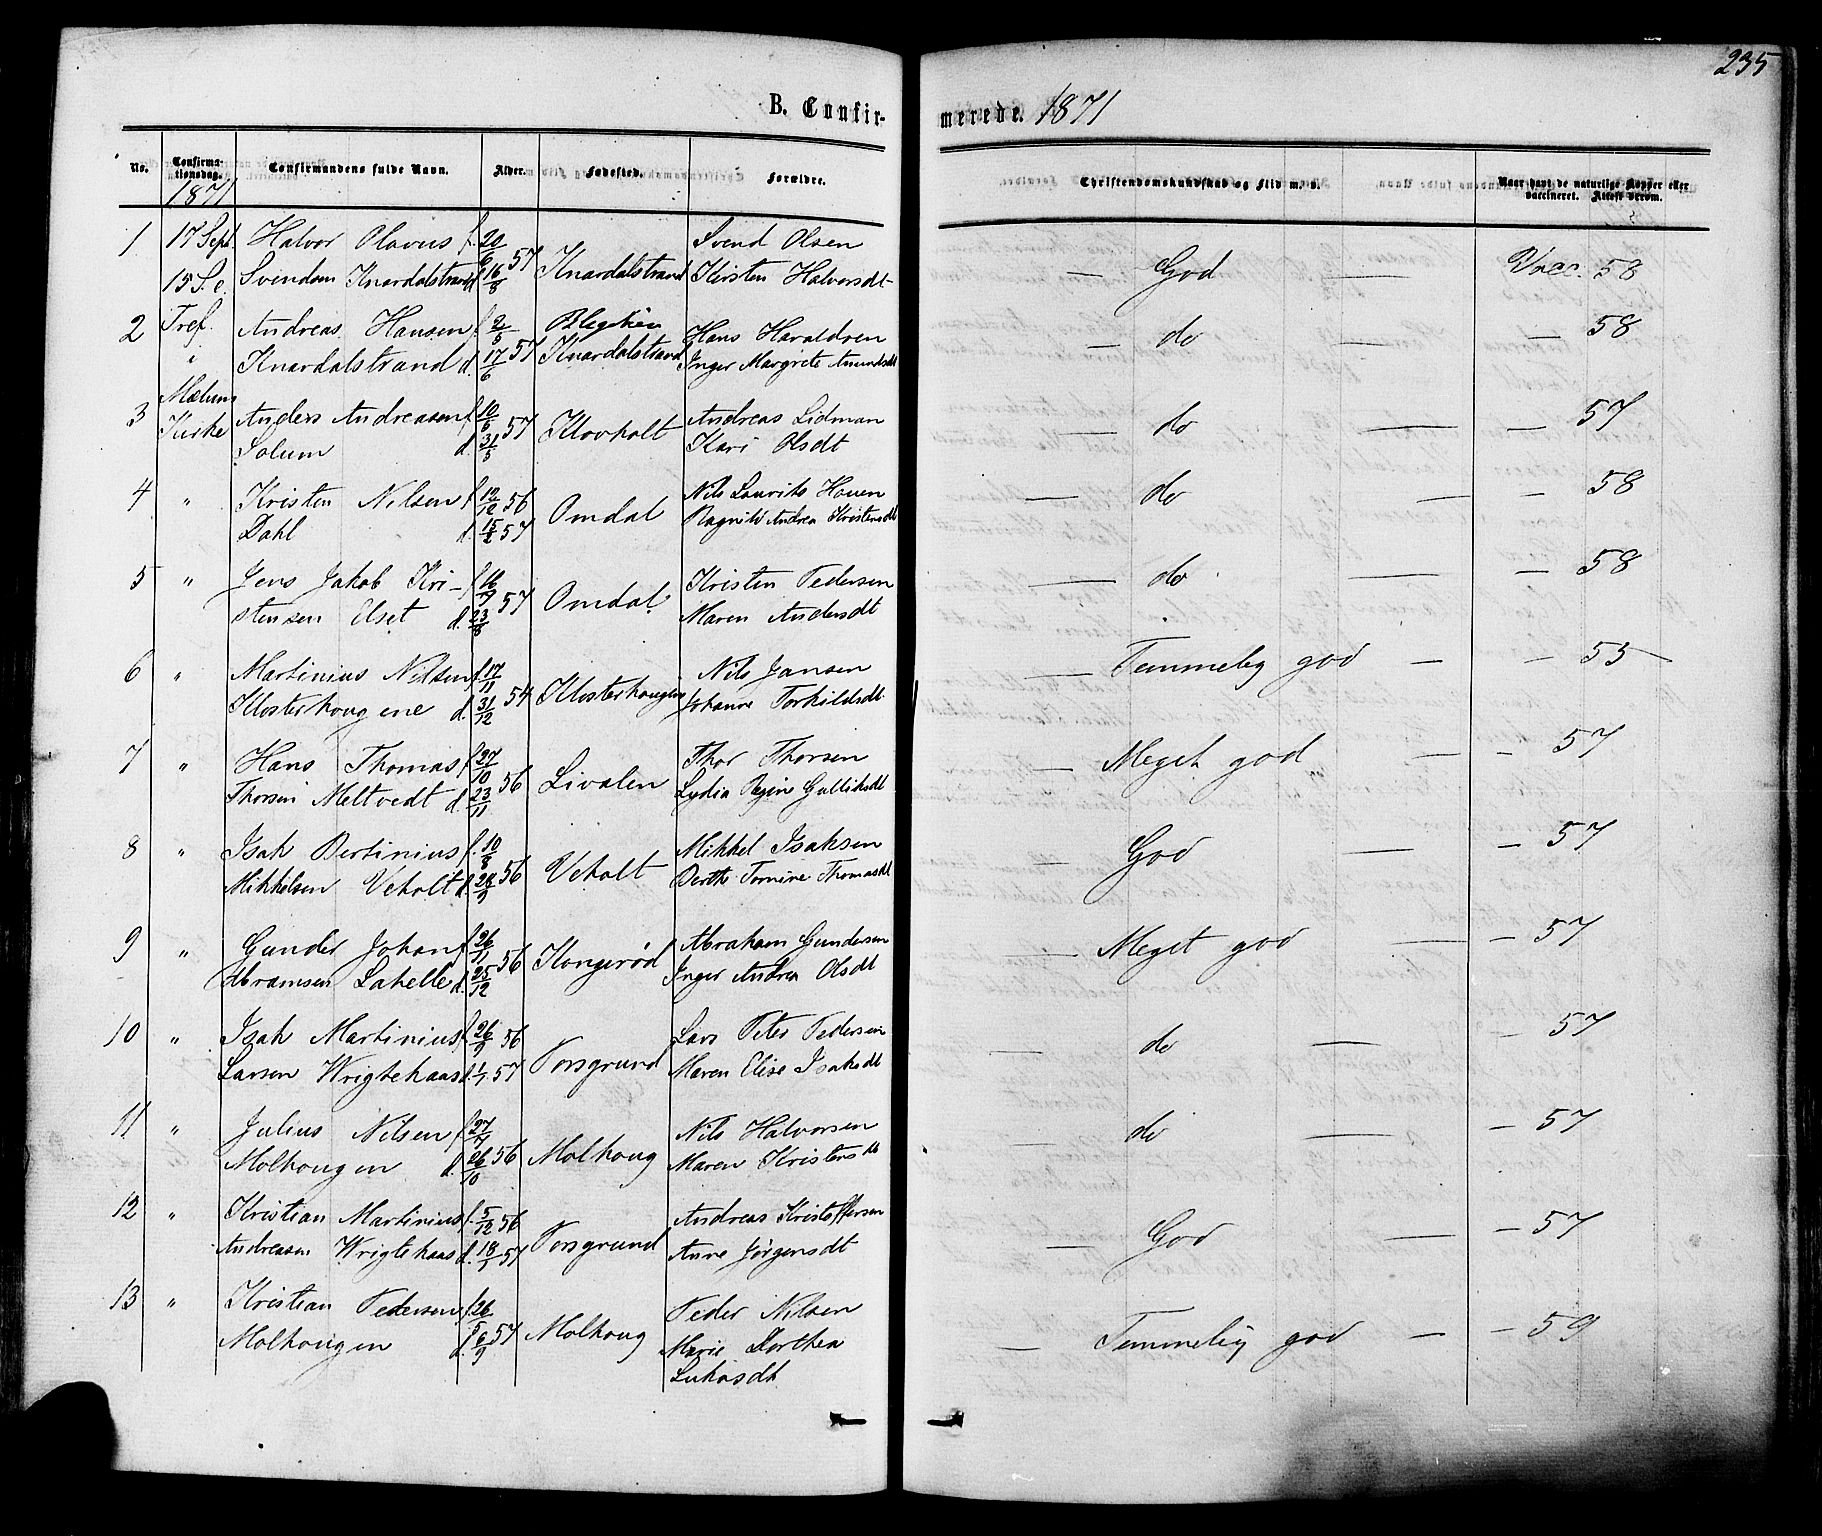 235
B. Confirmerede. 1871
No. Confirmationsdag. Confirmandens fulde Navn. Alder. Fødested. Forældre. Christendomskundskab og Flid m. v. Naar havt de naturlige Kopper eller vaccineret. Attest derom.
1871
1 17 Sept. Halvor Olavus f. 20/6 57 Knardalstrand Svend Olsen — God — Vacc. 58
15 S. e. Svendsen Knardalstrand d. 16/8 Kirsten Halvorsdt
2 Tref. Andreas Hansen f. 2/5 57 Hans Haraldsen — do — 58
" Knardalstrand d. 17/6 Knardalstrand Inger Margrete Amundsdt
Mælum
3 Kirke Anders Andreasen f. 10/6 57 Klovholt Andreas Lidman — do — — 57
Solum d. 31/5 Kari Olsdt
4 " Kristen Nilsen f. 12/12 56 Omdal Nils Laurits Hauen — do — — 58
Dahl d. 15/2 57 Ragnild Andrea Kristensdt
5 " Jens Jakob Kri- f. 16/7 57 Omdal Kristen Pedersen — do — — 58
stensen Elset d. 23/8 Maren Andersdt
6 " Martinius Nilsen f. 17/11 54 Klosterhougene Nils Jansen — Temmelig god — — 55
Klosterhougene d. 31/12 Johanne Torkildsdt
7 " Hans Thomas f. 27/10 56 Livalen Thor Thorsen — Meget god — — 57
Thorsen Meltvedt d. 23/11 Lydia Regine Gulliksdt
8 " Isak Bertinius f. 10/8 56 Veholt Mikkel Isaksen — God — — 57
Mikkelsen Veholt d. 28/9 Berthe Tomine Thomasdt
9 " Gunder Johan f. 26/11 56 Kongerød Abraham Gundersen — Meget god — — 57
Abramsen Lahelle d. 25/12 Inger Andrea Olsdt
10 " Isak Martinius f. 26/9 56 Porsgrund Lars Peter Pedersen — do — — 57
Larsen Wrigtehaas d. 1/1 57 Maren Elise Isaksdt
11 " Julius Nilsen f. 27/7 56 Molhoug Nils Halvorsen — do — — 57
Molhougen d. 26/10 Maren Kristensdt
12 " Kristian Martinius f. 5/12 56 Porsgrund Andreas Kristoffersen — God — — 57
Andreasen Wrigtehaas d. 18/1 57 Anne Jørgensdt
13 " Kristian Pedersen f. 26/5 57 Molhoug Peder Nilsen — Temmelig god — — 59
Molhougen d. 6/9 Marie Dorthea
Lukasdt